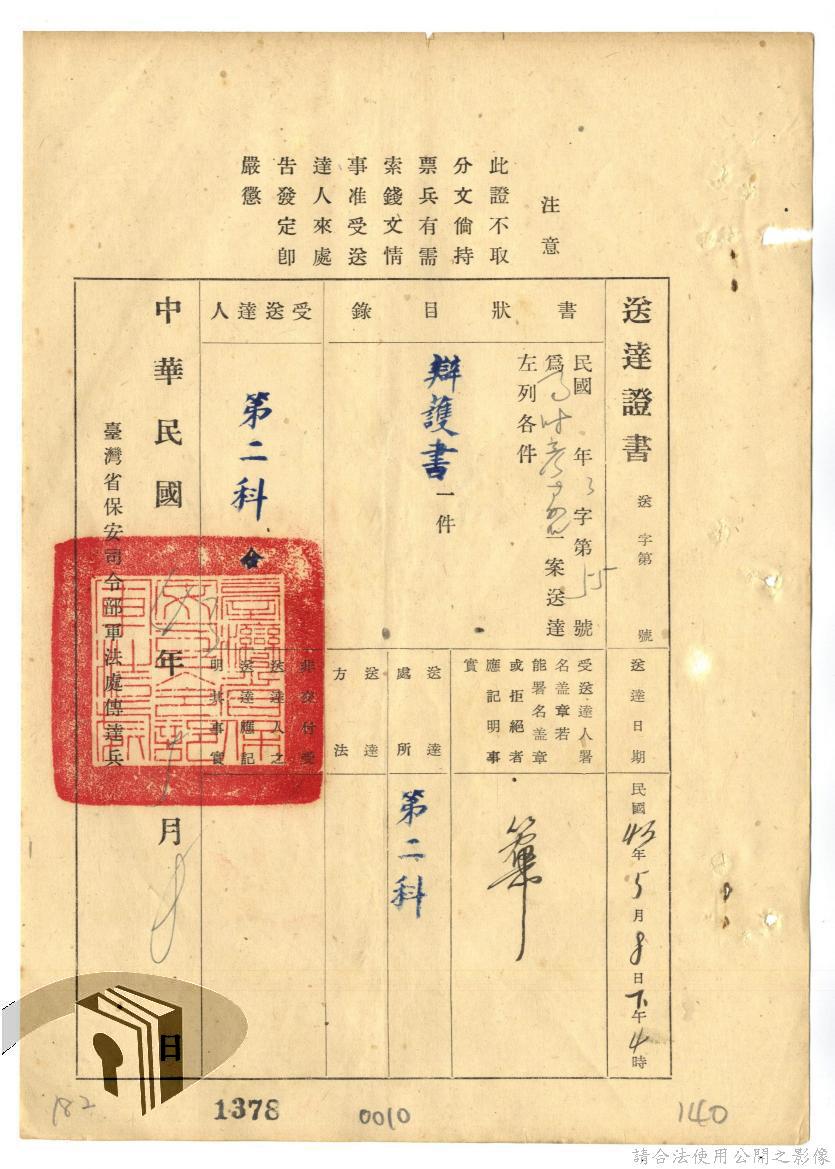 注意
此證不取
分文倘持
票兵有需
索錢文情
事准受送
達人來處
告發定卽
嚴懲
送達證書
送字第 號
送達日期
民國45年5月8日下午4時
書狀目錄
民國 年 字第 號
爲 一案送達
左列各件
辯護書一件
受送達人署
名盖章若
能署名盖章
或拒絕者
應記明事
實
送達處所
第二科
送達方法
受送達人
第二科
非交付受
送達人之
送達應記
明其事實
中華民國 年 月 日
臺灣省保安司令部軍法處傳達兵
182
1378
0010
140
請合法使用公開之影像